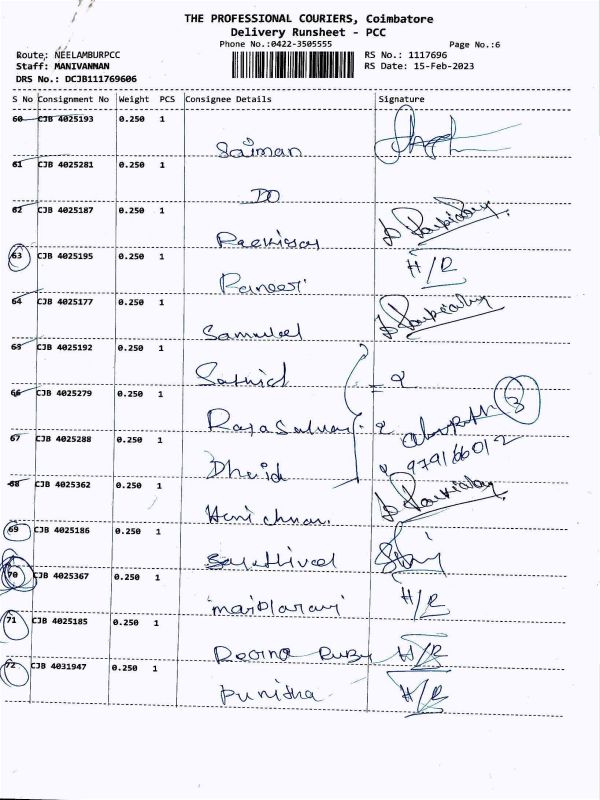 THE PROFESSIONAL COURIERS, Coimbatore
Delivery Runsheet - PCC
Phone No.:0422-3505555
Page No.:6
Route: NEELAMBURPCC
RS No.: 1117696
Staff: MANIVANNAN
RS Date: 15-Feb-2023
DRS No.: DCJB111769606
S No Consignment No Weight PCS Consignee Details Signature
60 CJB 4025193 0.250 1
Saiman
61 CJB 4025281 0.250 1
DO
62 CJB 4025187 0.250 1
63 CJB 4025195 0.250 1
H/R
Raneer
64 CJB 4025177 0.250 1
Samuel
65 CJB 4025192 0.250 1
66 CJB 4025279 0.250 1
3
67 CJB 4025288 0.250 1
68 CJB 4025362 0.250 1
69 CJB 4025186 0.250 1
70 CJB 4025367 0.250 1
H/R
71 CJB 4025185 0.250 1
Ruby H/R
72 CJB 4031947 0.250 1
Punitha H/R